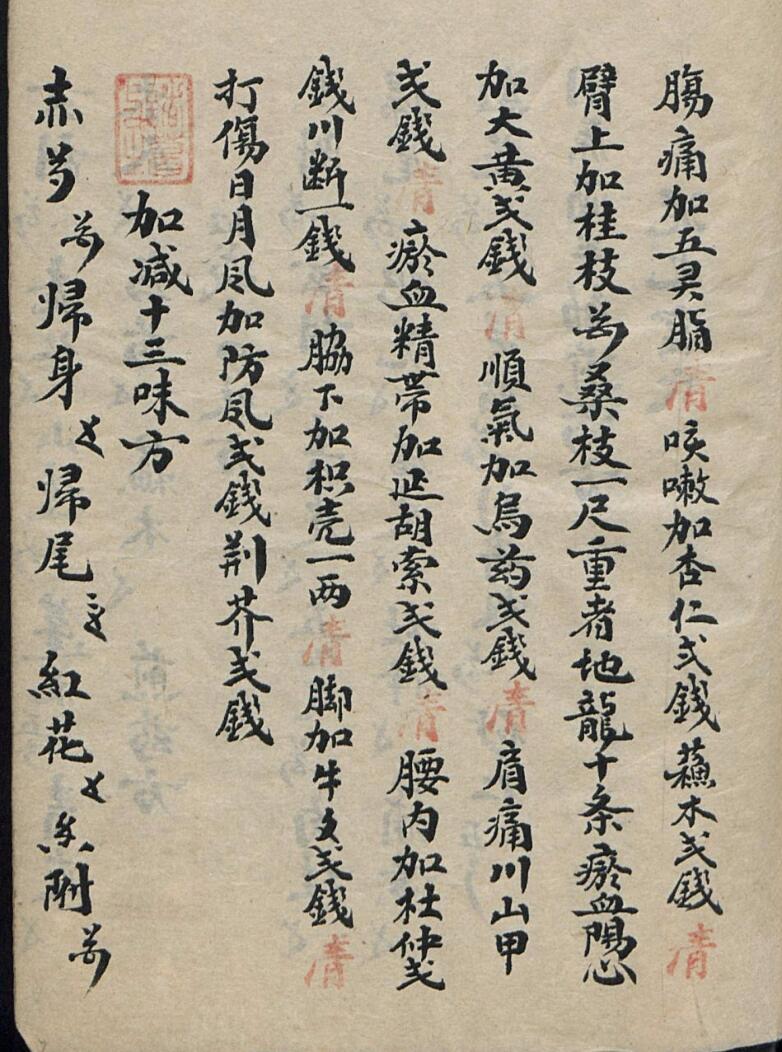 腸痛加五灵脂清咳嗽加杏仁弍錢蘓木弍錢清
臂上加桂枝桑枝一尺重者地龍十条瘀血陽心
加大黄弍錢清順氣加烏药弍錢清肩痛川山甲
弍錢清瘀血精帯加延胡索弍錢清腰内加杜仲弍
錢川断一錢清脇下加枳壳一两清脚加牛夕弍錢清
打傷日月风加防风弍錢荆芥弍錢
加减十三味方
赤芍歸身歸尾紅花附